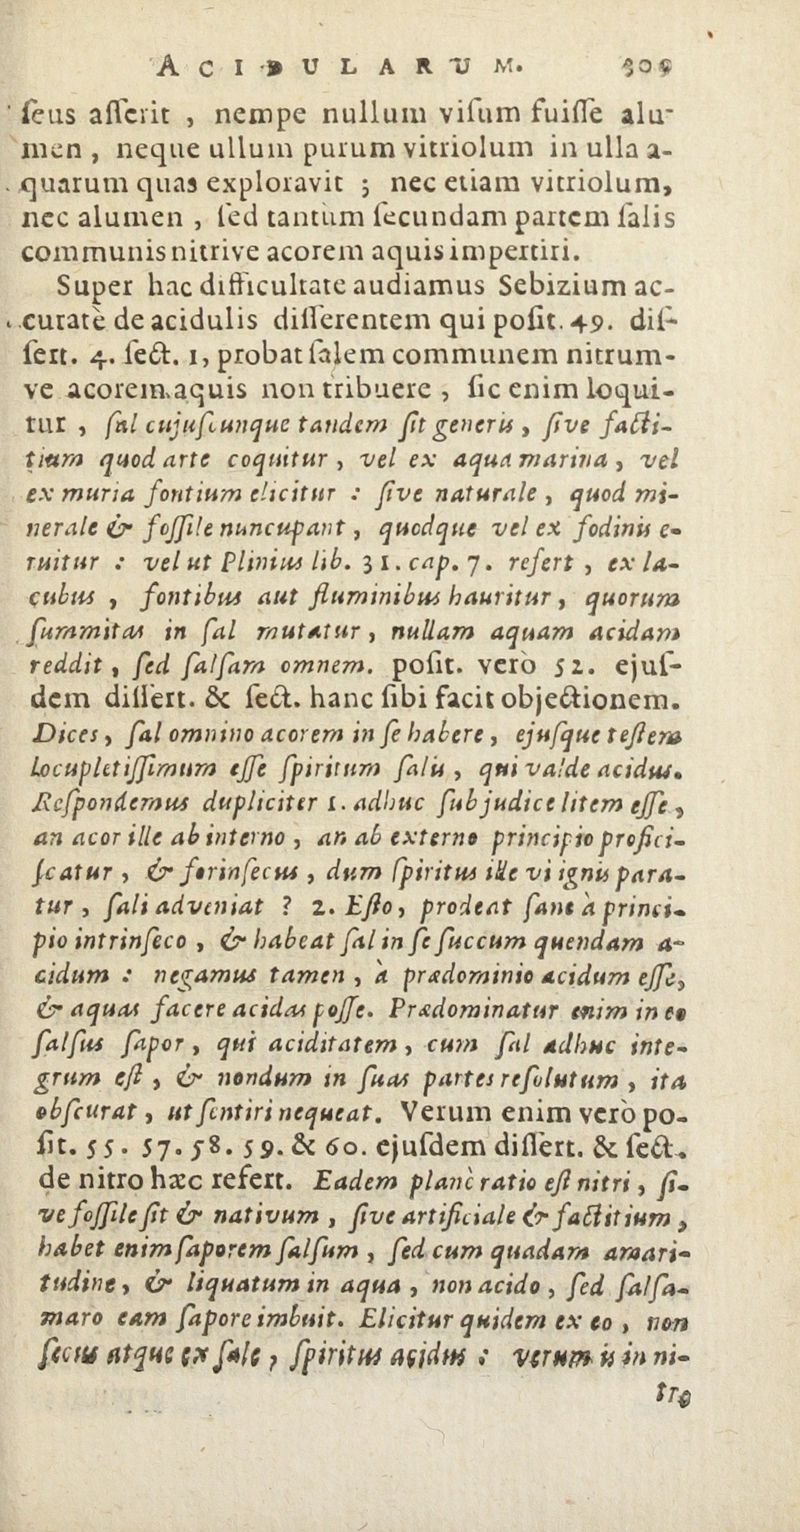 ACIDULARUM. 305
ſeus aſſerit , nempe nullum viſum fuiſſe alu-
men , neque ullum purum vitriolum in ulla a-
quarum quas exploravit ; nec etiam vitriolum,
nec alumen , ſed tantùm ſecundam partem ſalis
communis nitrive acorem aquis impertiri.
Super hac difficultate audiamus Sebizium ac-
curatè de acidulis diſſerentem qui poſit. 49. diſ-
ſert. 4. ſect. 1, probat ſalem communem nitrum-
ve acorem aquis non tribuere , ſic enim loqui-
tur , ſal cujuſcunque tandem ſit generis , ſive facti-
tium quod arte coquitur , vel ex aqua marina , vel
ex muria fontium elicitur : ſive naturale , quod mi-
nerale & foſſile nuncupant , quodque vel ex fodinis e-
ruitur : vel ut Plinius lib. 31. cap. 7. refert , ex la-
cubus , fontibus aut fluminibus hauritur , quorum
ſummitas in ſal mutatur , nullam aquam acidam
reddit , ſed ſalſam omnem. poſit. verò 52. ejuſ-
dem diſſert. & ſect. hanc ſibi facit objectionem.
Dices , ſal omnino acorem in ſe habere , ejuſque teſtem
locupletiſſimum eſſe ſpiritum ſalis , qui valde acidus.
Reſpondemus dupliciter 1. adhuc ſub judice litem eſſe ,
an acor ille ab interno , an ab externo principio profici-
ſcatur , & forinſecus , dum ſpiritus ille vi ignis para-
tur , ſali adveniat ? 2. Eſto , prodeat ſane à princi-
pio intrinſeco , & habeat ſal in ſe ſuccum quendam a-
cidum : negamus tamen , à prædominio acidum eſſe,
& aquas facere acidas poſſe. Prædominatur enim in eo
ſalſus ſapor , qui aciditatem , cum ſal adhuc inte-
grum eſt , & nondum in ſuas partes reſolutum , ita
obſcurat , ut ſentiri nequeat. Verum enim verò po-
ſit. 55. 57. 58. 59. & 60. ejuſdem diſſert. & ſect.
de nitro hæc refert. Eadem planè ratio eſt nitri , ſi-
ve foſſile ſit & nativum , ſive artificiale & factitium ,
habet enim ſaporem ſalſum , ſed cum quadam amari-
tudine , & liquatum in aqua , non acido , ſed ſalſa-
maro eam ſapore imbuit. Elicitur quidem ex eo , non
ſecus atque ex ſale , ſpiritus acidus : verum is in ni-
tro